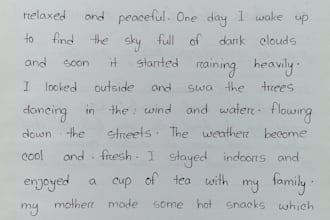 relaxed and peaceful. One day I wake up
to find the sky full of dark clouds
and soon it started raining heavily.
I looked outside and swa the trees
dancing in the: wind and water. flowing
down the streets. The weather become
cool and. fresh. I stayed indoors and
enjoyed a cup of tea with my family.
my mother made some hot snacks which